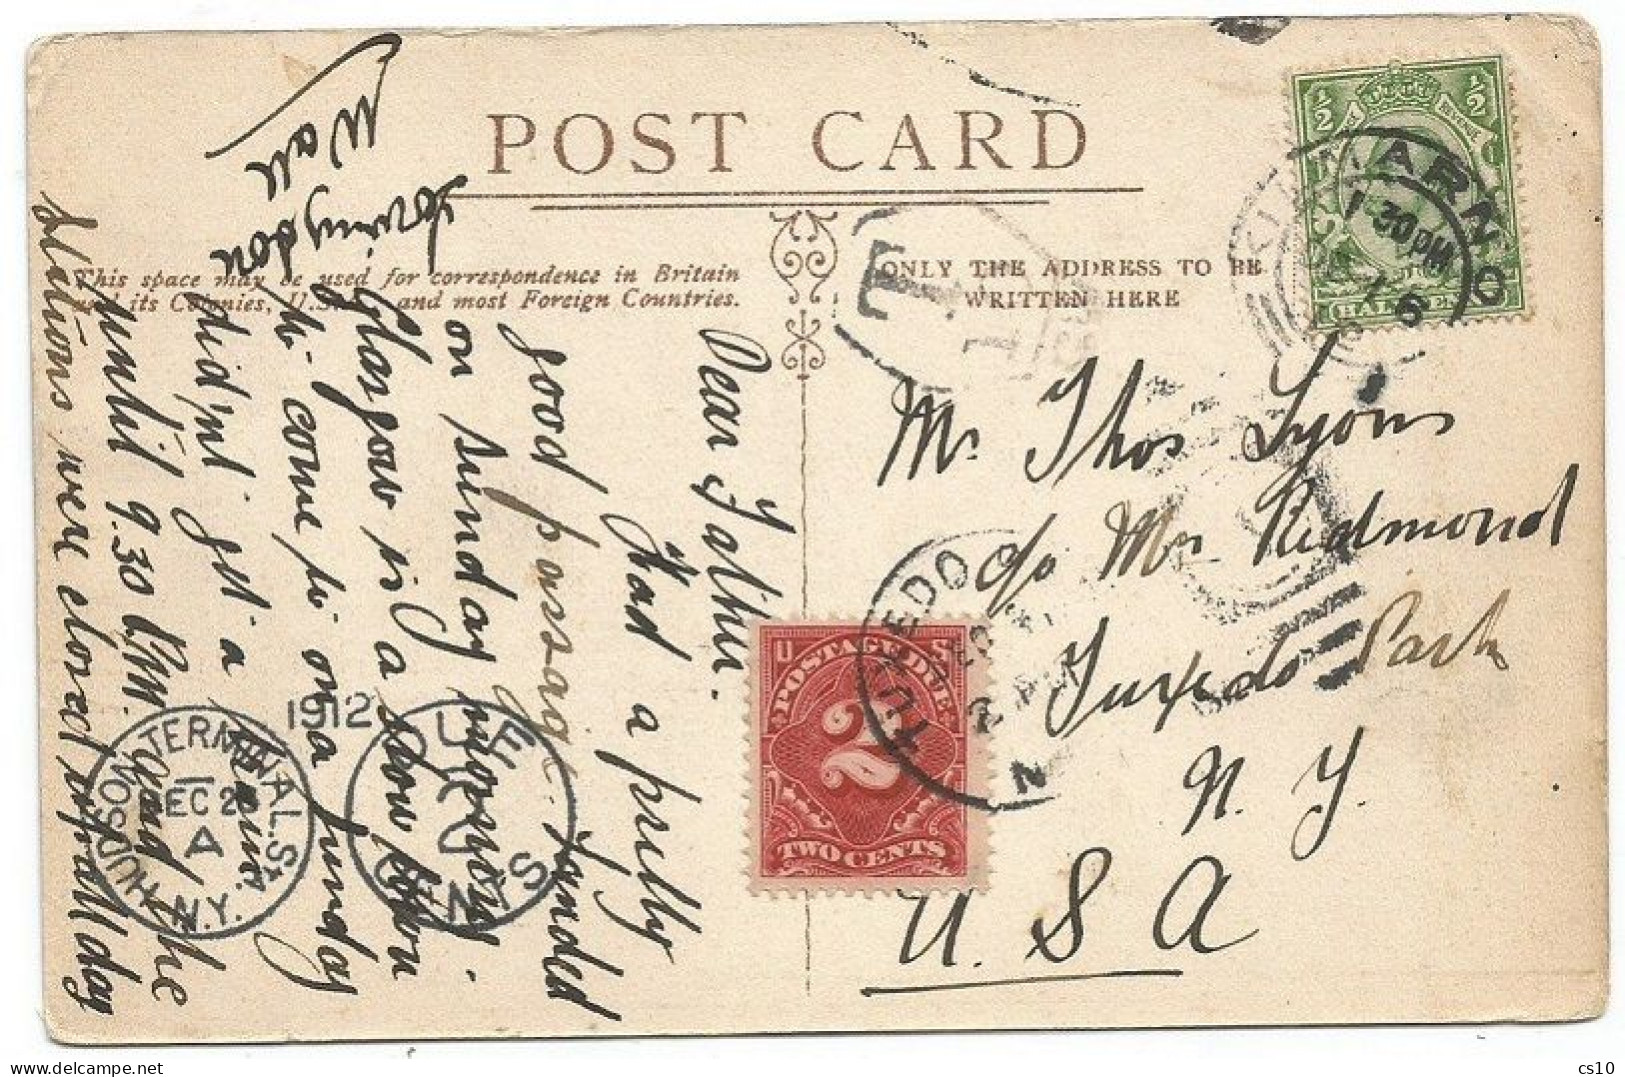 POST CARD
This space may be used for correspondence in Britain
and its Colonies, U.S. and most Foreign Countries.
ONLY THE ADDRESS TO BE
WRITTEN HERE
Dear Father.
Had a pretty
good passage. Landed
on Sunday morning.
Glasgow is a slow town
to come to on a Sunday
didn't get a train
until 9.30 P.M. and the
stations were closed up all day
Loving Son
Walt
Mr Thos Lyons
c/o Mr Redmond
Tuxedo Park
N. Y.
U S A
½ ½
REVENUE
HALF
KILMARNOCK
1-30 PM
6
12
T
U S
POSTAGE DUE
2
TWO CENTS
TUXEDO
N
1912
HUDSON TERMINAL STA.
DEC 2
A
N.Y.
DUE
CENTS
cs10